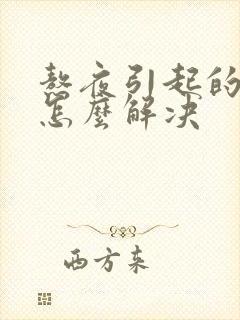 熬夜引起的
怎麼解决
西方来